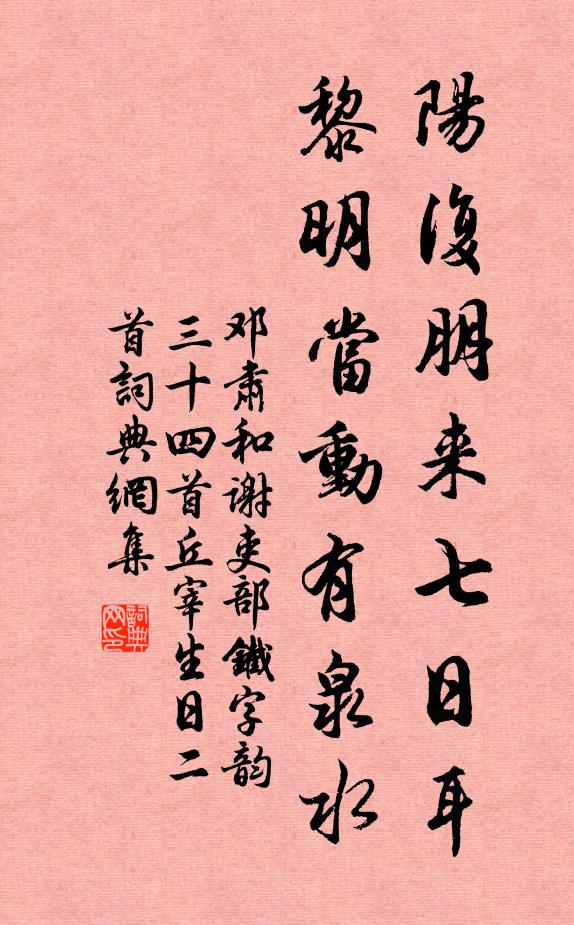 陽復朋来七日耳
黎明當動有泉水
邓肅和谢吏部鐵字韵
三十四首丘宰生日二
首詞典網集
詞典网印